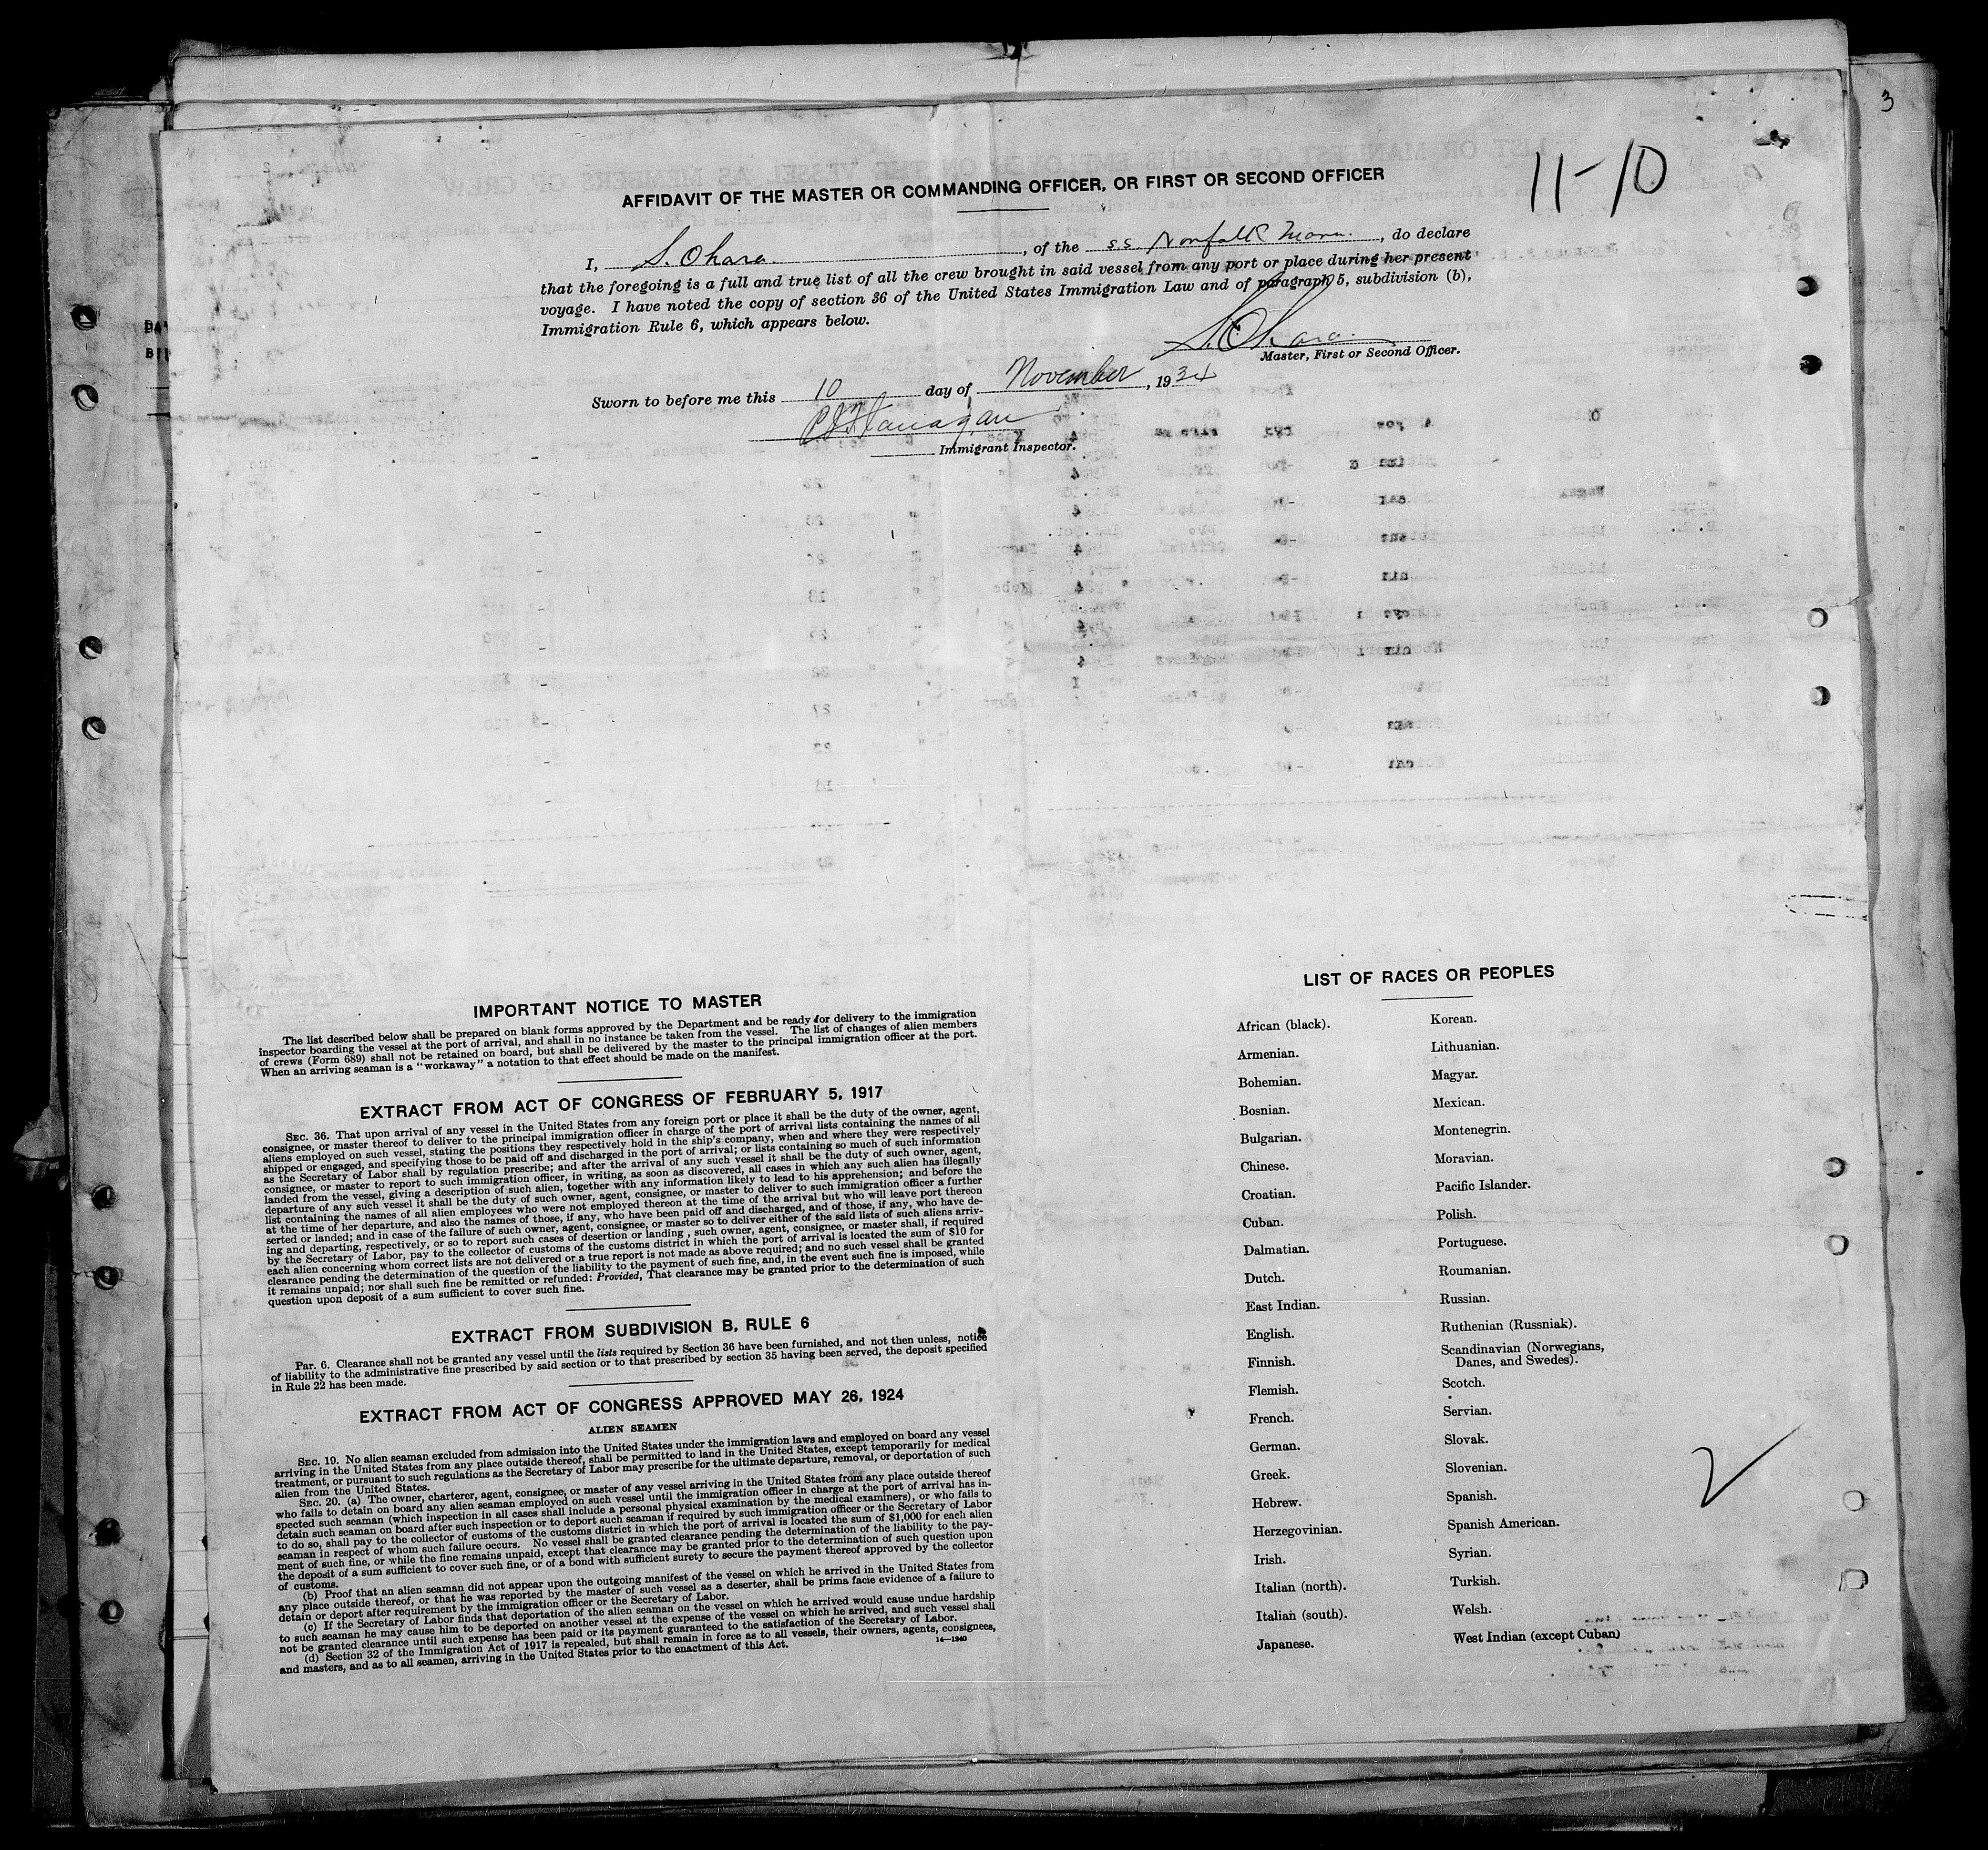 3
11-10
AFFIDAVIT OF THE MASTER OR COMMANDING OFFICER, OR FIRST OR SECOND OFFICER
I, S. Ohara, of the s.s. Norfolk Maru, do declare
that the foregoing is a full and true list of all the crew brought in said vessel from any port or place during her present
voyage. I have noted the copy of section 36 of the United States Immigration Law and of paragraph 5, subdivision (b),
Immigration Rule 6, which appears below.
S. Ohara
Master, First or Second Officer.
Sworn to before me this 10 day of November, 1934
Flanagan
Immigrant Inspector.
IMPORTANT NOTICE TO MASTER
The list described below shall be prepared on blank forms approved by the Department and be ready for delivery to the immigration
inspector boarding the vessel at the port of arrival, and shall in no instance be taken from the vessel. The list of changes of alien members
of crews (Form 689) shall not be retained on board, but shall be delivered by the master to the principal immigration officer at the port.
When an arriving seaman is a "workaway" a notation to that effect should be made on the manifest.
EXTRACT FROM ACT OF CONGRESS OF FEBRUARY 5, 1917
SEC. 36. That upon arrival of any vessel in the United States from any foreign port or place it shall be the duty of the owner, agent,
consignee, or master thereof to deliver to the principal immigration officer in charge of the port of arrival lists containing the names of all
aliens employed on such vessel, stating the positions they respectively hold in the ship's company, when and where they were respectively
shipped or engaged, and specifying those to be paid off and discharged in the port of arrival; or lists containing so much of such information
as the Secretary of Labor shall by regulation prescribe; and after the arrival of any such vessel it shall be the duty of such owner, agent,
consignee, or master to report to such immigration officer, in writing, as soon as discovered, all cases in which any such alien has illegally
landed from the vessel, giving a description of such alien, together with any information likely to lead to his apprehension; and before the
departure of any such vessel it shall be the duty of such owner, agent, consignee, or master to deliver to such immigration officer a further
list containing the names of all alien employees who were not employed thereon at the time of the arrival but who will leave port thereon
at the time of her departure, and also the names of those, if any, who have been paid off and discharged, and of those, if any, who have de-
serted or landed; and in case of the failure of such owner, agent, consignee, or master so to deliver either of the said lists of such aliens arriv-
ing and departing, respectively, or so to report such cases of desertion or landing , such owner, agent, consignee, or master shall, if required
by the Secretary of Labor, pay to the collector of customs of the customs district in which the port of arrival is located the sum of $10 for
each alien concerning whom correct lists are not delivered or a true report is not made as above required; and no such vessel shall be granted
clearance pending the determination of the question of the liability to the payment of such fine, and, in the event such fine is imposed, while
it remains unpaid; nor shall such fine be remitted or refunded: Provided, That clearance may be granted prior to the determination of such
question upon deposit of a sum sufficient to cover such fine.
EXTRACT FROM SUBDIVISION B, RULE 6
Par. 6. Clearance shall not be granted any vessel until the lists required by Section 36 have been furnished, and not then unless, notice
of liability to the administrative fine prescribed by said section or to that prescribed by section 35 having been served, the deposit specified
in Rule 22 has been made.
EXTRACT FROM ACT OF CONGRESS APPROVED MAY 26, 1924
ALIEN SEAMEN
SEC. 19. No alien seaman excluded from admission into the United States under the immigration laws and employed on board any vessel
arriving in the United States from any place outside thereof, shall be permitted to land in the United States, except temporarily for medical
treatment, or pursuant to such regulations as the Secretary of Labor may prescribe for the ultimate departure, removal, or deportation of such
alien from the United States.
SEC. 20. (a) The owner, charterer, agent, consignee, or master of any vessel arriving in the United States from any place outside thereof
who fails to detain on board any alien seaman employed on such vessel until the immigration officer in charge at the port of arrival has in-
spected such seaman (which inspection in all cases shall include a personal physical examination by the medical examiners), or who fails to
detain such seaman on board after such inspection or to deport such seaman if required by such immigration officer or the Secretary of Labor
to do so, shall pay to the collector of customs of the customs district in which the port of arrival is located the sum of $1,000 for each alien
seaman in respect of whom such failure occurs. No vessel shall be granted clearance pending the determination of the liability to the pay-
ment of such fine, or while the fine remains unpaid, except that clearance may be granted prior to the determination of such question upon
the deposit of a sum sufficient to cover such fine, or of a bond with sufficient surety to secure the payment thereof approved by the collector
of customs.
(b) Proof that an alien seaman did not appear upon the outgoing manifest of the vessel on which he arrived in the United States from
any place outside thereof, or that he was reported by the master of such vessel as a deserter, shall be prima facie evidence of a failure to
detain or deport after requirement by the immigration officer or the Secretary of Labor.
(c) If the Secretary of Labor finds that deportation of the alien seaman on the vessel on which he arrived would cause undue hardship
to such seaman he may cause him to be deported on another vessel at the expense of the vessel on which he arrived, and such vessel shall
not be granted clearance until such expense has been paid or its payment guaranteed to the satisfaction of the Secretary of Labor.
(d) Section 32 of the Immigration Act of 1917 is repealed, but shall remain in force as to all vessels, their owners, agents, consignees,
and masters, and as to all seamen, arriving in the United States prior to the enactment of this Act.
14—1240
LIST OF RACES OR PEOPLES
African (black).
Armenian.
Bohemian.
Bosnian.
Bulgarian.
Chinese.
Croatian.
Cuban.
Dalmatian.
Dutch.
East Indian.
English.
Finnish.
Flemish.
French.
German.
Greek.
Hebrew.
Herzegovinian.
Irish.
Italian (north).
Italian (south).
Japanese.
Korean.
Lithuanian.
Magyar.
Mexican.
Montenegrin.
Moravian.
Pacific Islander.
Polish.
Portuguese.
Roumanian.
Russian.
Ruthenian (Russniak).
Scandinavian (Norwegians,
Danes, and Swedes).
Scotch.
Servian.
Slovak.
Slovenian.
Spanish.
Spanish American.
Syrian.
Turkish.
Welsh.
West Indian (except Cuban)